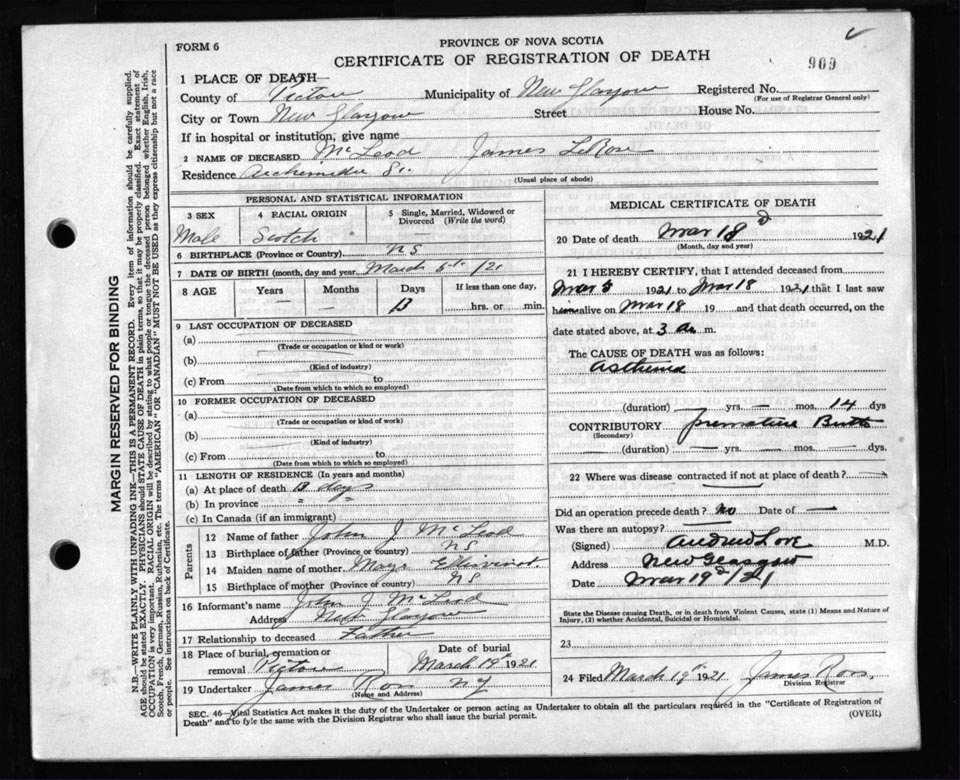 909
FORM 6
PROVINCE OF NOVA SCOTIA
CERTIFICATE OF REGISTRATION OF DEATH
MARGIN RESERVED FOR BINDING
N.B.—WRITE PLAINLY WITH UNFADING INK—THIS IS A PERMANENT RECORD. Every item of information should be carefully supplied.
AGE should be stated EXACTLY. PHYSICIANS should STATE CAUSE OF DEATH in plain terms, so that it may be properly classified. Exact statement of
OCCUPATION is very important. RACIAL ORIGIN will be described by stating to what people or tongue the deceased person belonged whether English, Irish,
Scotch, French, German, Russian, Ruthenian, etc. The terms "AMERICAN" OR "CANADIAN" MUST NOT BE USED as they express citizenship but not a race
or people. See instructions on back of Certificate.
1 PLACE OF DEATH—
County of Pictou Municipality of New Glasgow Registered No.
(For use of Registrar General only)
City or Town New Glasgow Street House No.
If in hospital or institution, give name
2 NAME OF DECEASED McLeod James LeRose
Residence Archemedes St.
(Usual place of abode)
PERSONAL AND STATISTICAL INFORMATION
3 SEX 4 RACIAL ORIGIN 5 Single, Married, Widowed or Divorced (Write the word)
Male Scotch —
6 BIRTHPLACE (Province or Country) NS
7 DATE OF BIRTH (month, day and year) March 5th /21
8 AGE Years Months Days If less than one day,
— — 13 hrs. or min.
9 LAST OCCUPATION OF DECEASED
(a)
(Trade or occupation or kind or work)
(b)
(Kind of industry)
(c) From to
(Date from which to which so employed)
10 FORMER OCCUPATION OF DECEASED
(a)
(Trade or occupation or kind of work)
(b)
(Kind of industry)
(c) From to
(Date from which to which so employed)
11 LENGTH OF RESIDENCE (In years and months)
(a) At place of death 13 days
(b) In province " "
(c) In Canada (if an immigrant)
Parents
12 Name of father John J McLeod
13 Birthplace of father (Province or country) NS
14 Maiden name of mother Mary
15 Birthplace of mother (Province or country) NS
16 Informant's name John J McLeod
Address New Glasgow
17 Relationship to deceased Father
18 Place of burial, cremation or removal Pictou
Date of burial March 19th 1921
19 Undertaker James Ross NG
(Name and Address)
MEDICAL CERTIFICATE OF DEATH
20 Date of death Mar 18 1921
(Month, day and year)
21 I HEREBY CERTIFY, that I attended deceased from
Mar 5 1921 to Mar 18 1921 that I last saw
him alive on Mar 18 19 and that death occurred, on the
date stated above, at 3 a. m.
The CAUSE OF DEATH was as follows:
Asthenia
(duration) yrs. — mos. 14 dys
CONTRIBUTORY Premature Birth
(Secondary)
(duration) yrs. mos. dys.
22 Where was disease contracted if not at place of death?
Did an operation precede death? no Date of —
Was there an autopsy?
(Signed) Andrew Love M.D.
Address New Glasgow
Date Mar 19th /21
State the Disease causing Death, or in death from Violent Causes, state (1) Means and Nature of
Injury, (2) whether Accidental, Suicidal or Homicidal.
23
24 Filed March 19th 1921 James Ross
Division Registrar
SEC. 46—Vital Statistics Act makes it the duty of the Undertaker or person acting as Undertaker to obtain all the particulars required in the "Certificate of Registration of
Death" and to fyle the same with the Division Registrar who shall issue the burial permit.
(OVER)